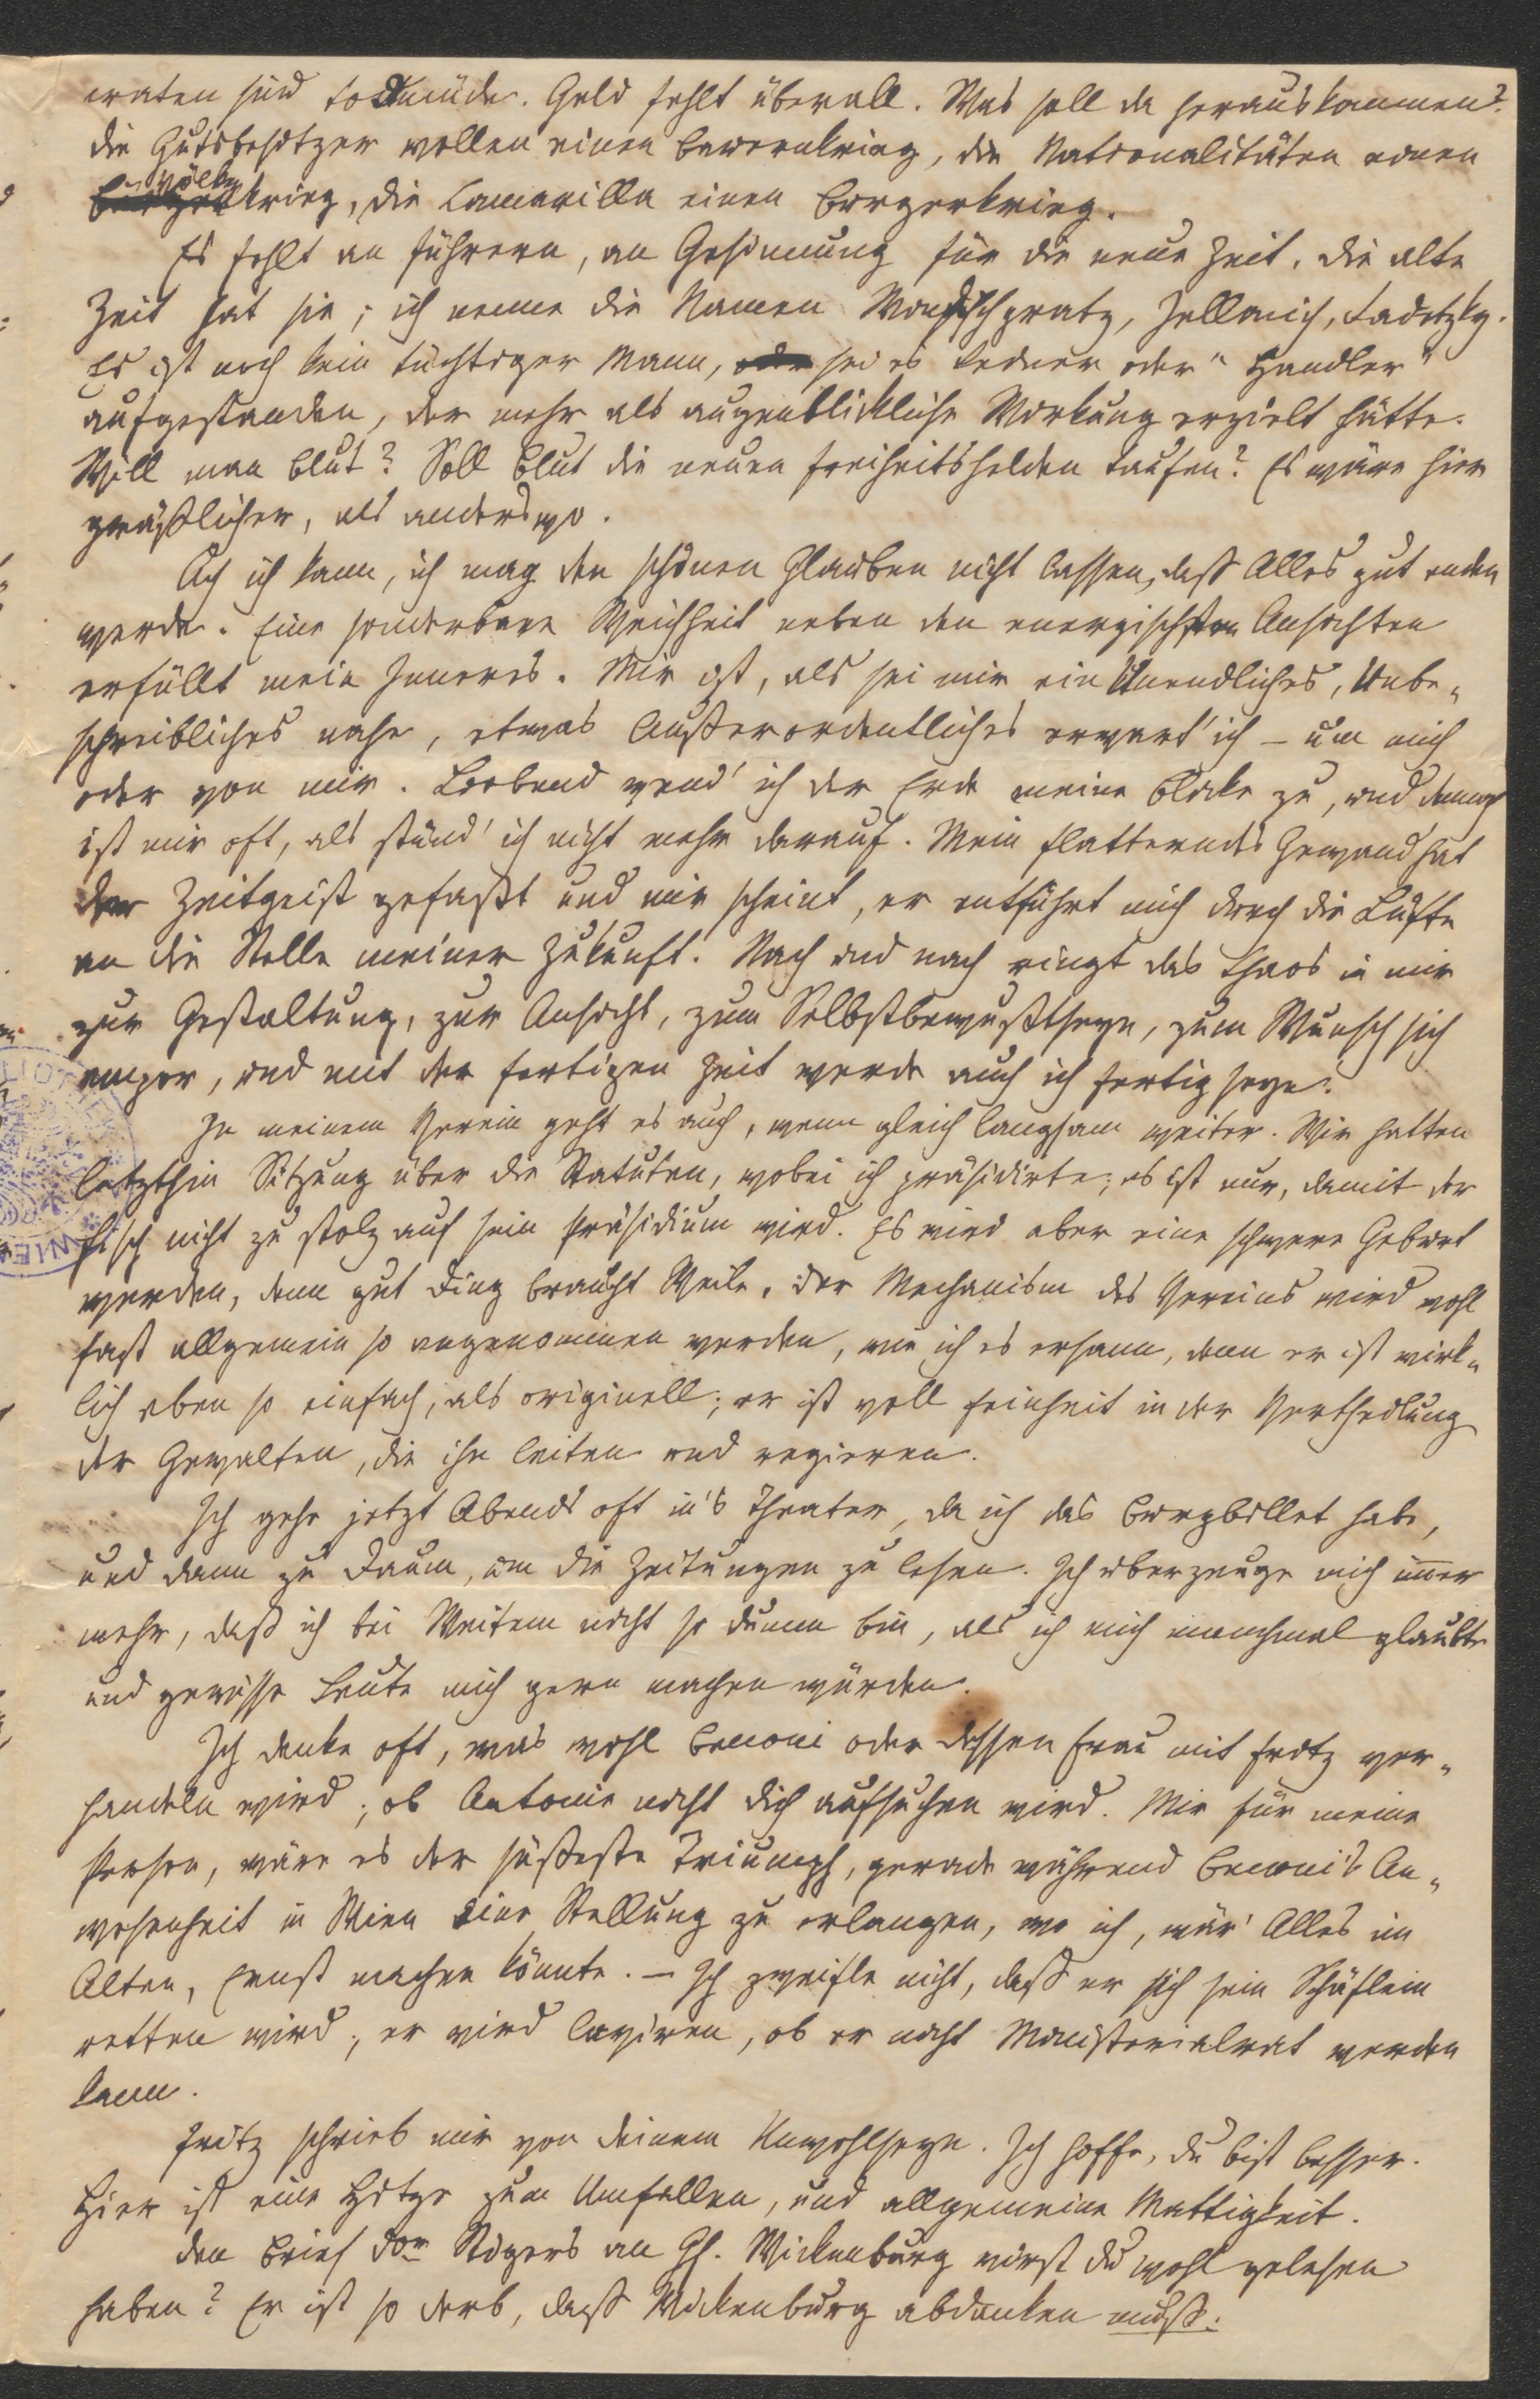 craten sind todtmüde. Geld fehlt überall. Was soll da herauskommen?
die Gutsbesitzer wollen einen Bauernkrieg, die Nationalitäten einen
Völkerkrieg, die Camarilla einen Bürgerkrieg.
Es fehlt an Führern, an Gesinnung für die neue Zeit. die alte
Zeit hat sie; ich nenne die Namen Windischgratz, Jellacic, Radetzky.
Es ist noch kein tüchtiger Mann, sei es Redner oder "Handler"
aufgestanden, der mehr als augenblickliche Wirkung erzielt hätte.
Will man Blut? Soll Blut die neuen Freiheitshelden taufen? Es wäre hier
gräßlicher, als anderswo.
Ach ich kann, ich mag den schönen Glauben nicht lassen, daß Alles gut enden
werde. Eine sonderbare Weichheit neben den energischsten Ansichten
erfüllt mein Inneres. Mir ist, als sei mir ein Unendliches, Unbe-
schreibliches nahe, etwas Außerordentliches erwart' ich – um mich
oder von mir. Liebend wend' ich der Erde meine Blicke zu, und dennoch
ist mir oft, als stünd' ich nicht mehr darauf. Mein flatterndes Gewand hat
der Zeitgeist gefaßt und mir scheint, er entführt mich durch die Lüfte
an die Stelle meiner Zukunft. Nach und nach ringt das Chaos in mir
zur Gestaltung, zur Ansicht, zum Selbstbewußtseyn, zum Wunsch sich
empor, und mit der fertigen Zeit werde auch ich fertig seyn.
In meinem Verein geht es auch, wenn gleich langsam weiter. Wir hatten
letzthin Sitzung über die Statuten, wobei ich präsidirte; es ist nur, damit der
Fisch nicht zu stolz auf sein Präsidium wird. Es wird aber eine schwere Geburt
werden, denn gut Ding braucht Weile. Der Mechanism des Vereins wird wohl
fast allgemein so angenommen werden, wie ich es ersann, denn er ist wirk-
lich eben so einfach, als originell; er ist voll Feinheit in der Vertheilung
der Gewalten, die ihn leiten und regieren.
Ich gehe jetzt Abends oft in's Theater, da ich das Burgbillet habe,
und dann zu Daum, um die Zeitungen zu lesen. Ich überzeuge mich immer
mehr, daß ich bei Weitem nicht so dumm bin, als ich mich manchmal glaubte
und gewisse Leute mich gern machen würden.
Ich denke oft, was wohl Benoni oder dessen Frau mit Fritz ver-
handeln wird; ob Antonie nicht dich aufsuchen wird. Mir für meine
Person, wäre es der süßeste Triumph, gerade während Benoni's An-
wesenheit in Wien eine Stellung zu erlangen, wo ich, wär' Alles im
Alten, Ernst machen könnte. – Ich zweifle nicht, daß er sich sein Schäflein
retten wird; er wird laviren, ob er nicht Ministerialrat werden
kann.
Fritz schrieb mir von deinem Unwohlseyn. Ich hoffe, du bist besser.
Hier ist eine Hitze zum Umfallen, und allgemeine Mattigkeit.
Den Brief Dor Stögers an Gf. Wickenburg wirst du wohl gelesen
haben? Er ist so derb, daß Wickenburg abdanken muß.